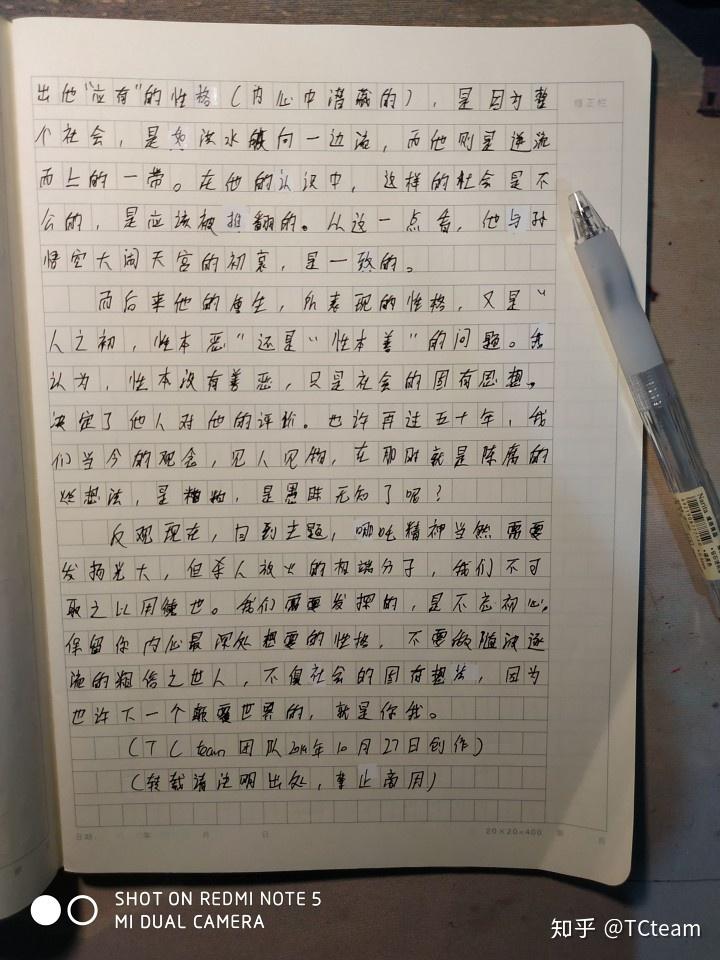 出他“应有”的性格(内心中潜藏的),是因为整
修正栏
个社会,是如洪水般向一边流,而他则是逆流
而上的一带。在他的认识中,这样的社会是不
公的,是应该被推翻的。从这一点看,他与孙
悟空大闹天宫的初衷,是一致的。
而后来他的重生,所表现的性格,又是“
人之初,性本恶”还是“性本善”的问题。我
认为,性本没有善恶,只是社会的固有思想,
决定了他人对他的评价。也许再过五十年,我
们当今的观念,见人见物,在那时就是陈腐的
想法,是糟粕,是愚昧无知了呢?
反观现在,回到主题,哪吒精神当然需要
发扬光大,但杀人放火的极端分子,我们不可
取之以用健也。我们需要发探的,是不忘初心,
保留你内心最深处想要的性格,不要做随波逐
流的粗俗之世人,不惧社会的固有想法,因为
也许下一个颠覆世界的,就是你我。
(TC team团队2019年10月27日创作)
(转载请注明出处,禁止商用)
日期 年 月 日
20×20=400 第 页
SHOT ON REDMI NOTE 5
MI DUAL CAMERA
知乎 @TCteam